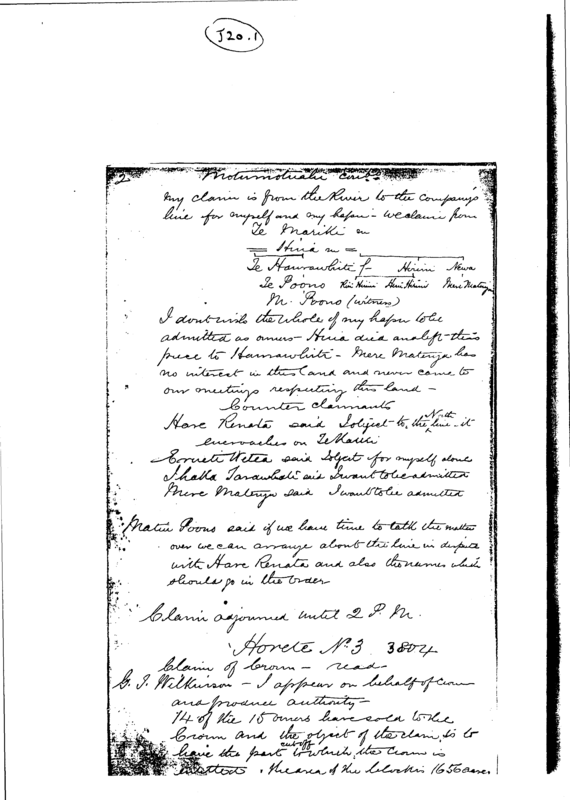 J20.1
2 Motumotualii cont.d
My claim is from the River to the Company's
line for myself and my hapu - We claim from
Te Mariki m
= Hinia m =
Te Hamawhiti f - Hirini Newa
Te Poono Hirini Mere Matenga
M. Poono (witness)
I dont wish the whole of my hapu to be
admitted as owners - Hinia died and left this
piece to Hamawhiti - Mere Matenga has
no interest in this land and never came to
our meetings respecting this land -
Counter claimants
Hare Renata said I object to the North line - it
encroaches on Te Mariki
Wetea said Object for myself alone
said I want to be admitted
Mere Matenga said I want to be admitted
Matiu Poono said if we have time to talk the matter
over we can arrange about the line in dispute
with Hare Renata and also the names which
should go in the order
Claim adjourned until 2 P.M.
Horete No. 3 3804
Claim of Crown - read
G. T. Wilkinson - I appear on behalf of Crown
and produce authority -
14 of the 15 owners have sold to the
Crown and the object of the claim is to
have the part cut off to which the Crown is
entitled. The area of the block is 1656 acres.